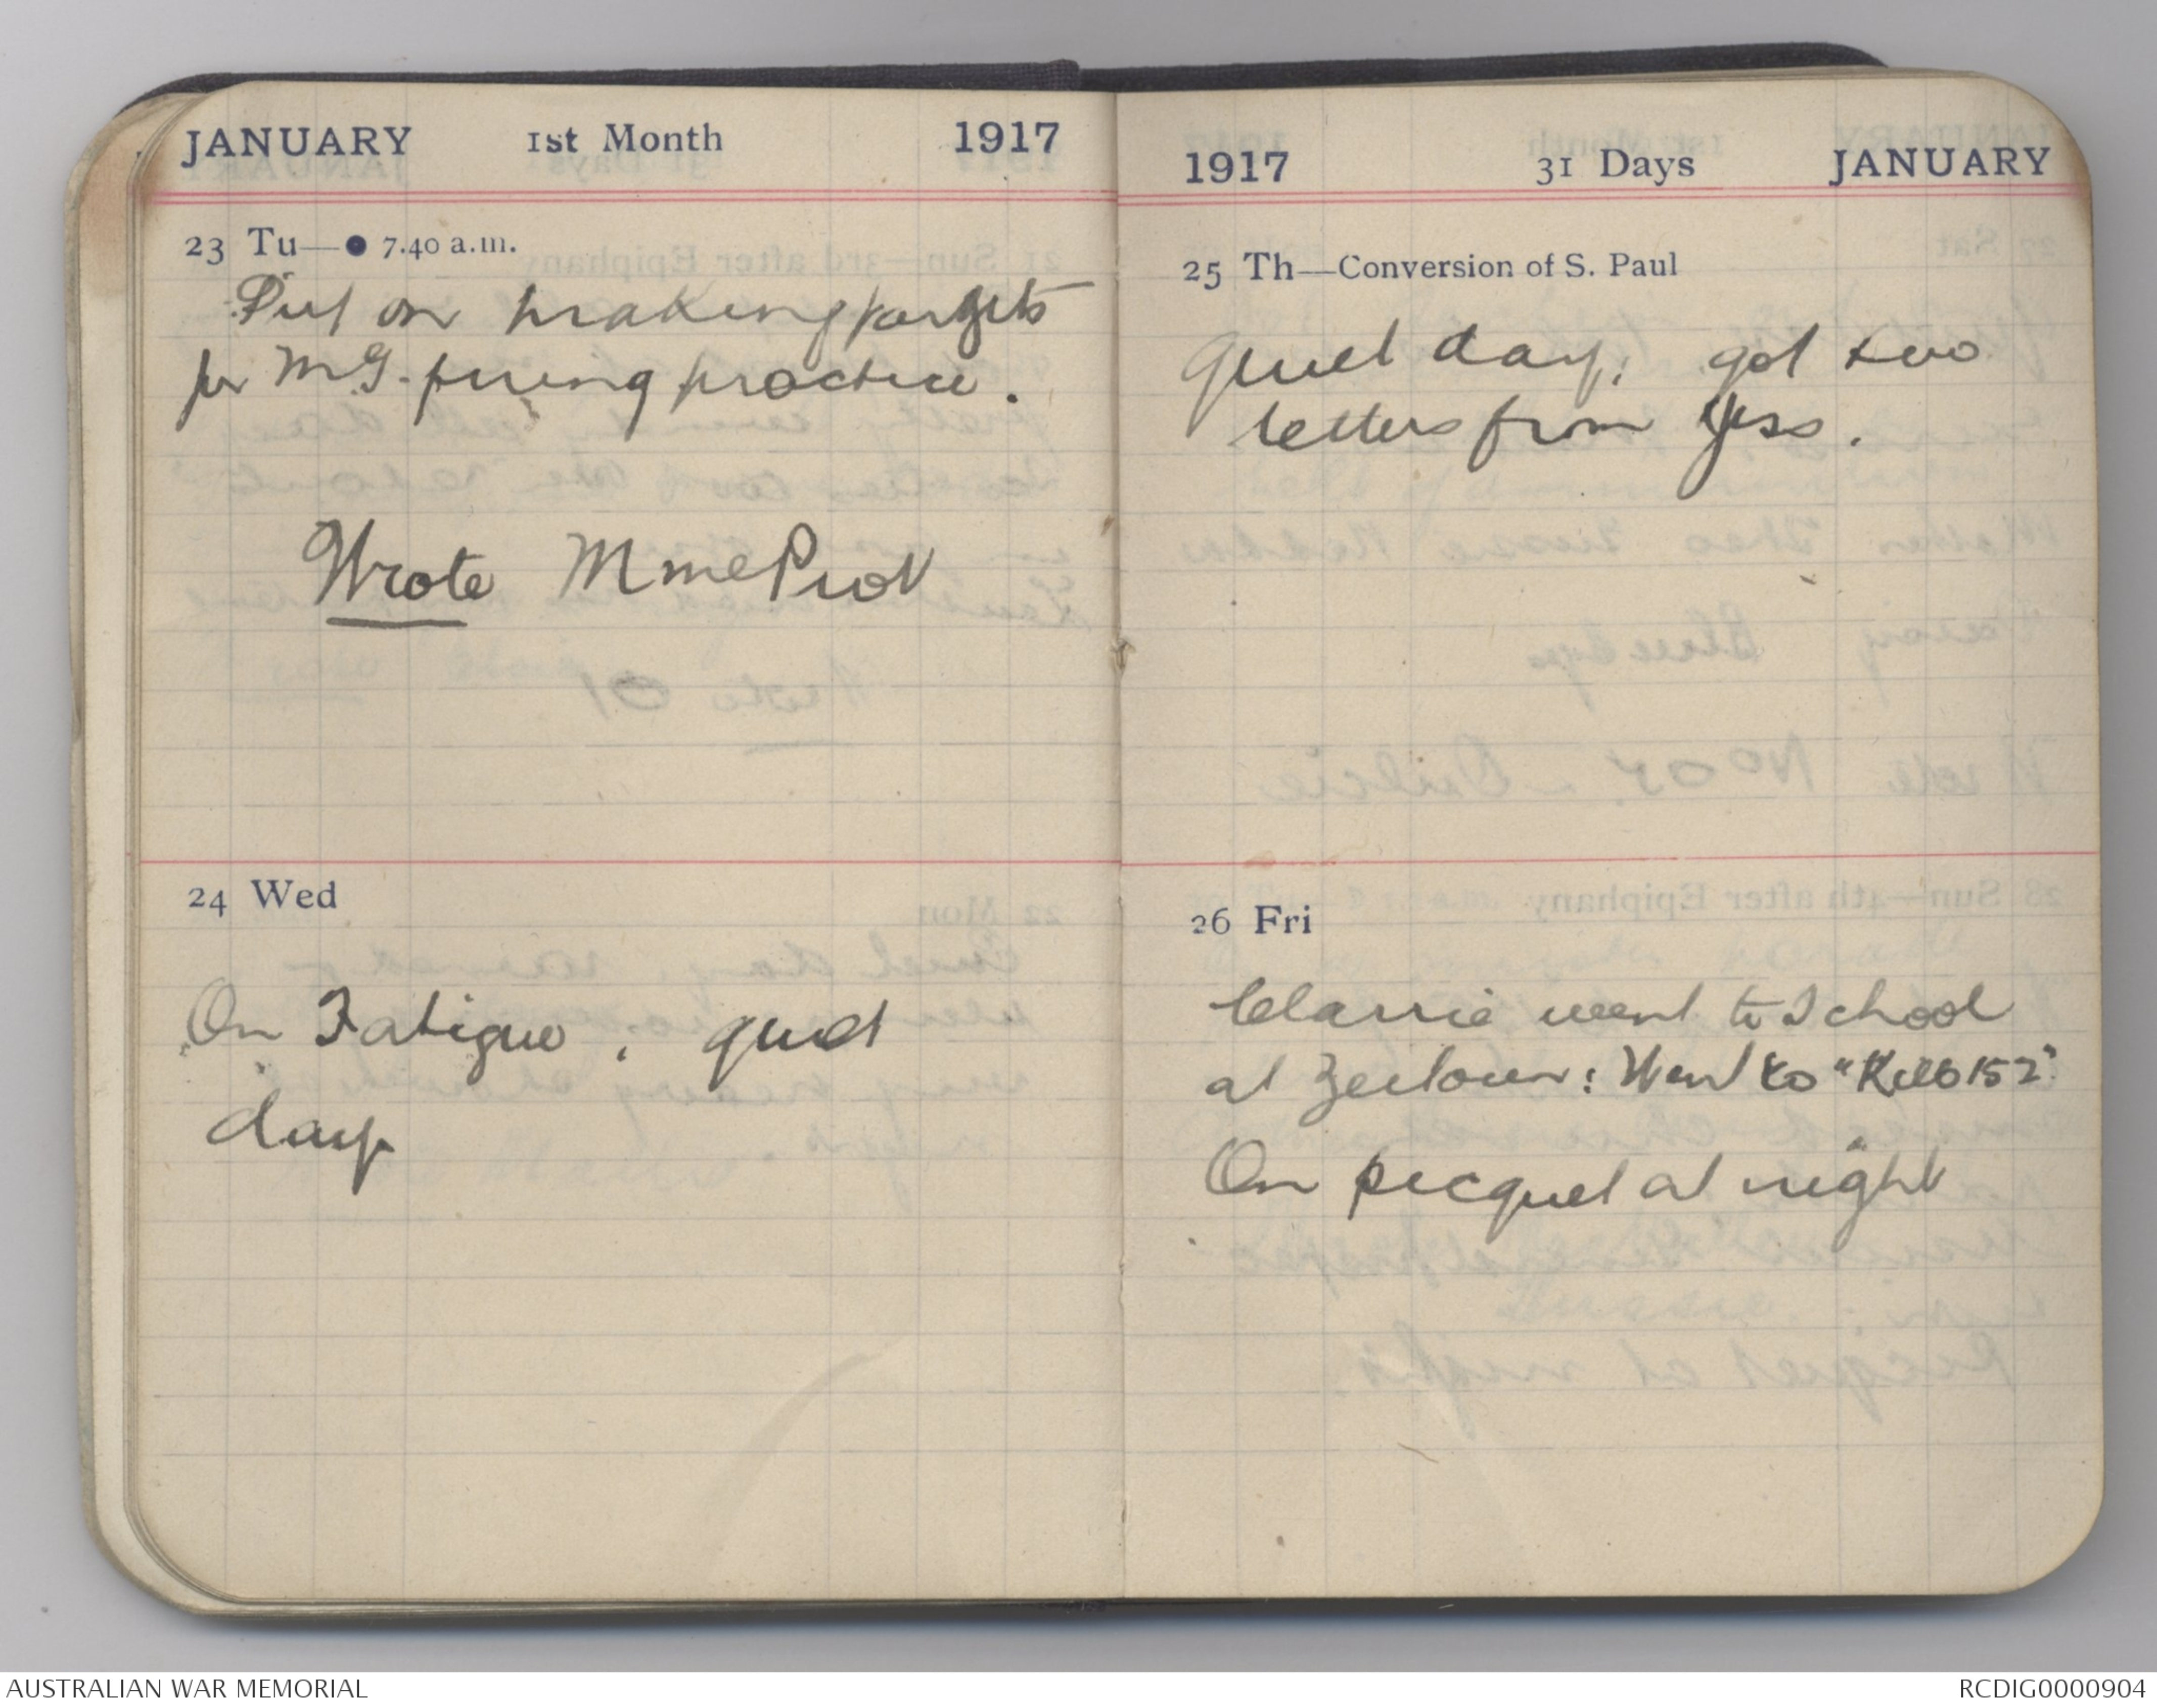 JANUARY 1st Month 1917
23 Tu—● 7.40 a.m.
Put on making targets
for M.G. firing practice.
Wrote Mme Piot
24 Wed
On Fatigue, quiet
day
1917 31 Days JANUARY
25 Th—Conversion of S. Paul
Quiet day; got two
letters from Jess.
26 Fri
Clarrie went to School
at Zeitoun: Went to "Kilo 152"
On picquet at night
AUSTRALIAN WAR MEMORIAL
RCDIG0000904